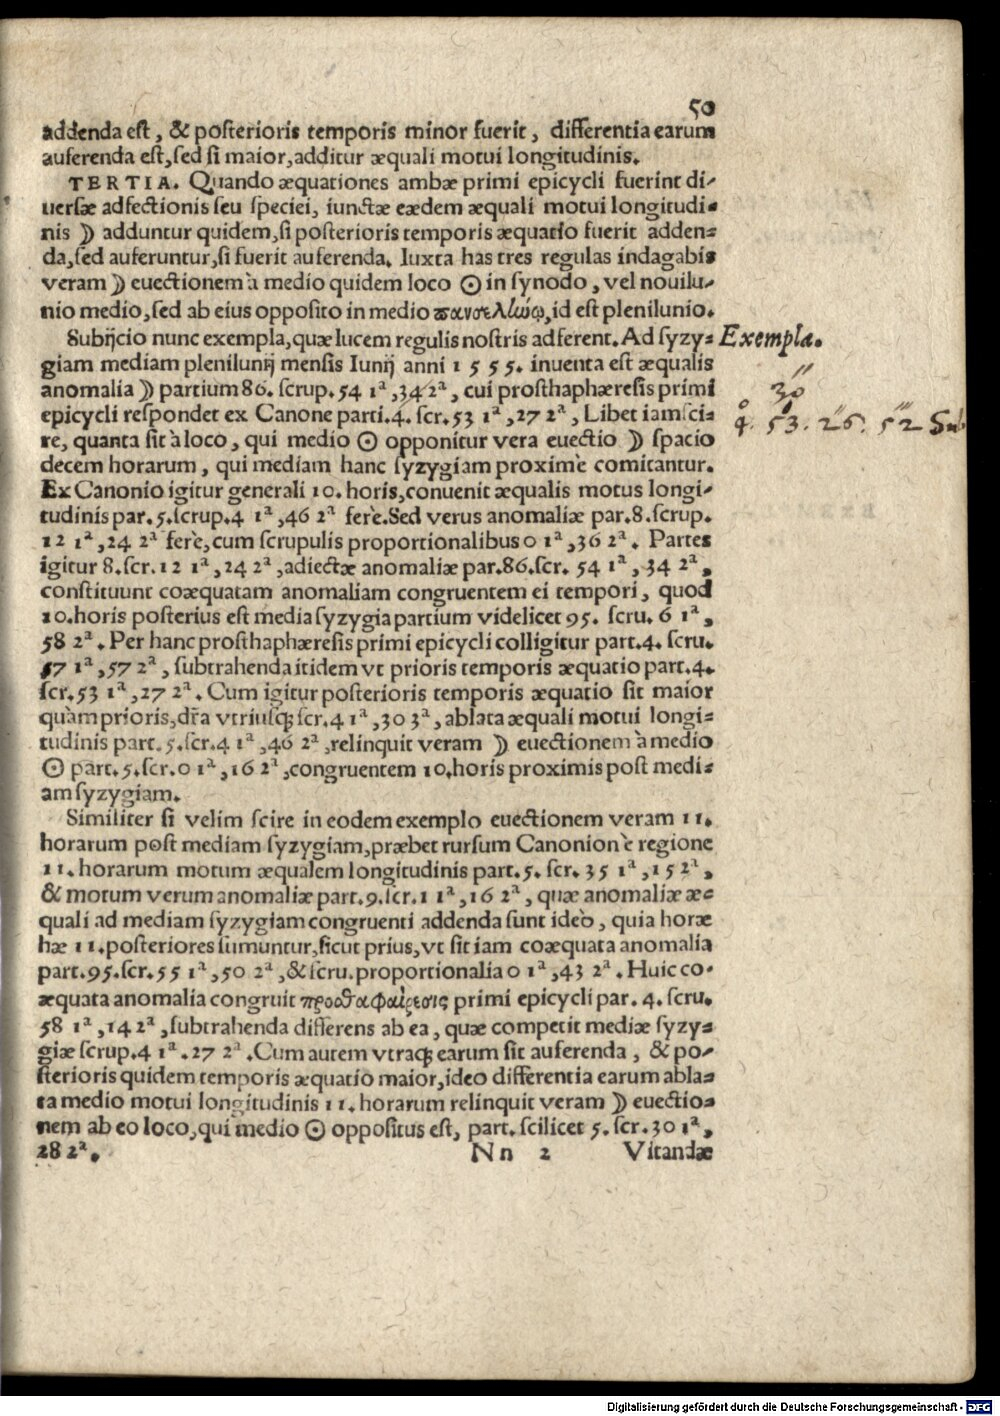 50
addenda est, & posterioris temporis minor fuerit, differentia earum
auferenda est, sed si maior, additur æquali motui longitudinis.
TERTIA. Quando æquationes ambæ primi epicycli fuerint di-
uersæ adfectionis seu speciei, iunctæ eædem æquali motui longitudi-
nis ☽ adduntur quidem, si posterioris temporis æquatio fuerit adden-
da, sed auferuntur, si fuerit auferenda. Iuxta has tres regulas indagabis
veram ☽ euectionem à medio quidem loco ☉ in synodo, vel nouilu-
nio medio, sed ab eius opposito in medio πανσελίωῳ, id est plenilunio.
Subijcio nunc exempla, quæ lucem regulis nostris adferent. Ad syzy- Exempla.
giam mediam plenilunij mensis Iunij anni 1555. inuenta est æqualis
anomalia ☽ partium 86. scrup. 54 1ª, 34 2ª, cui prosthaphæresis primi
30″
epicycli respondet ex Canone parti. 4. scr. 53 1ª, 27 2ª, Libet iam sci-
4. 53. 26. 52 Sub
re, quanta sit à loco, qui medio ☉ opponitur vera euectio ☽ spacio
decem horarum, qui mediam hanc syzygiam proximè comitantur.
Ex Canonio igitur generali 10. horis, conuenit æqualis motus longi-
tudinis par. 5. scrup. 4 1ª, 46 2ª ferè. Sed verus anomaliæ par. 8. scrup.
12 1ª, 24 2ª ferè, cum scrupulis proportionalibus 0 1ª, 36 2ª. Partes
igitur 8. scr. 12 1ª, 24 2ª, adiectæ anomaliæ par. 86. scr. 54 1ª, 34 2ª,
constituunt coæquatam anomaliam congruentem ei tempori, quod
10. horis posterius est media syzygia partium videlicet 95. scru. 6 1ª,
58 2ª. Per hanc prosthaphæresis primi epicycli colligitur part. 4. scru.
57 1ª, 57 2ª, subtrahenda itidem vt prioris temporis æquatio part. 4.
scr. 53 1ª, 27 2ª. Cum igitur posterioris temporis æquatio sit maior
quàm prioris, dr̃a vtriusq; scr. 4 1ª, 30 3ª, ablata æquali motui longi-
tudinis part. 5. scr. 4 1ª, 46 2ª, relinquit veram ☽ euectionem à medio
☉ part. 5. scr. 0 1ª, 16 2ª, congruentem 10. horis proximis post medi-
am syzygiam.
Similiter si velim scire in eodem exemplo euectionem veram 11.
horarum post mediam syzygiam, præbet rursum Canonion è regione
11. horarum motum æqualem longitudinis part. 5. scr. 35 1ª, 15 2ª,
& motum verum anomaliæ part. 9. scr. 1 1ª, 16 2ª, quæ anomaliæ æ-
quali ad mediam syzygiam congruenti addenda sunt ideò, quia horæ
hæ 11. posteriores sumuntur, sicut prius, vt sit iam coæquata anomalia
part. 95. scr. 55 1ª, 50 2ª, & scru. proportionalia 0 1ª, 43 2ª. Huic co-
æquata anomalia congruit προσθαφαίρεσις primi epicycli par. 4. scru.
58 1ª, 14 2ª, subtrahenda differens ab ea, quæ competit mediæ syzy-
giæ scrup. 4 1ª. 27 2ª. Cum autem vtraq; earum sit auferenda, & po-
sterioris quidem temporis æquatio maior, ideo differentia earum abla-
ta medio motui longitudinis 11. horarum relinquit veram ☽ euectio-
nem ab eo loco, qui medio ☉ oppositus est, part. scilicet 5. scr. 30 1ª,
28 2ª. Nn 2 Vitandæ
Digitalisierung gefördert durch die Deutsche Forschungsgemeinschaft - DFG